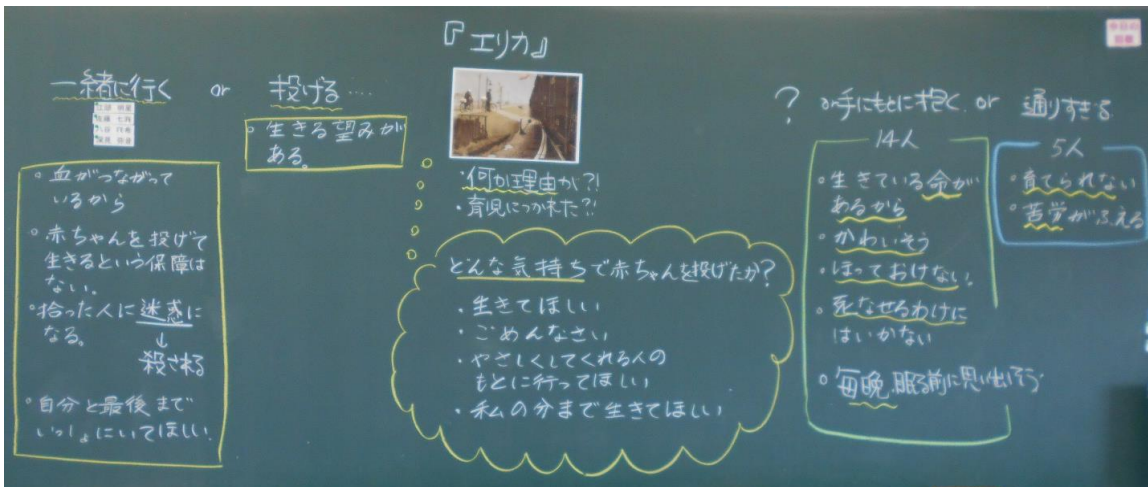 『エリカ』
一緒に行く or 投げる....
・血がつながって
いるから
・赤ちゃんを投げて
生きるという保障は
ない。
・拾った人に迷惑に
なる。
↓
殺される
・自分と最後まで
いっしょにいてほしい
・生きる望みが
ある。
・何か理由が?!
・育児につかれた?!
どんな気持ちで赤ちゃんを投げたか?
・生きてほしい
・ごめんなさい
・やさしくしてくれる人の
もとに行ってほしい
・私の分まで生きてほしい
? 手にもとに抱く or 通りすぎる
14人
・生きている命が
あるから
・かわいそう
・ほっておけない。
・死なせるわけに
はいかない
・毎晩、眠る前に思い出そう
5人
・育てられない
・苦労がふえる